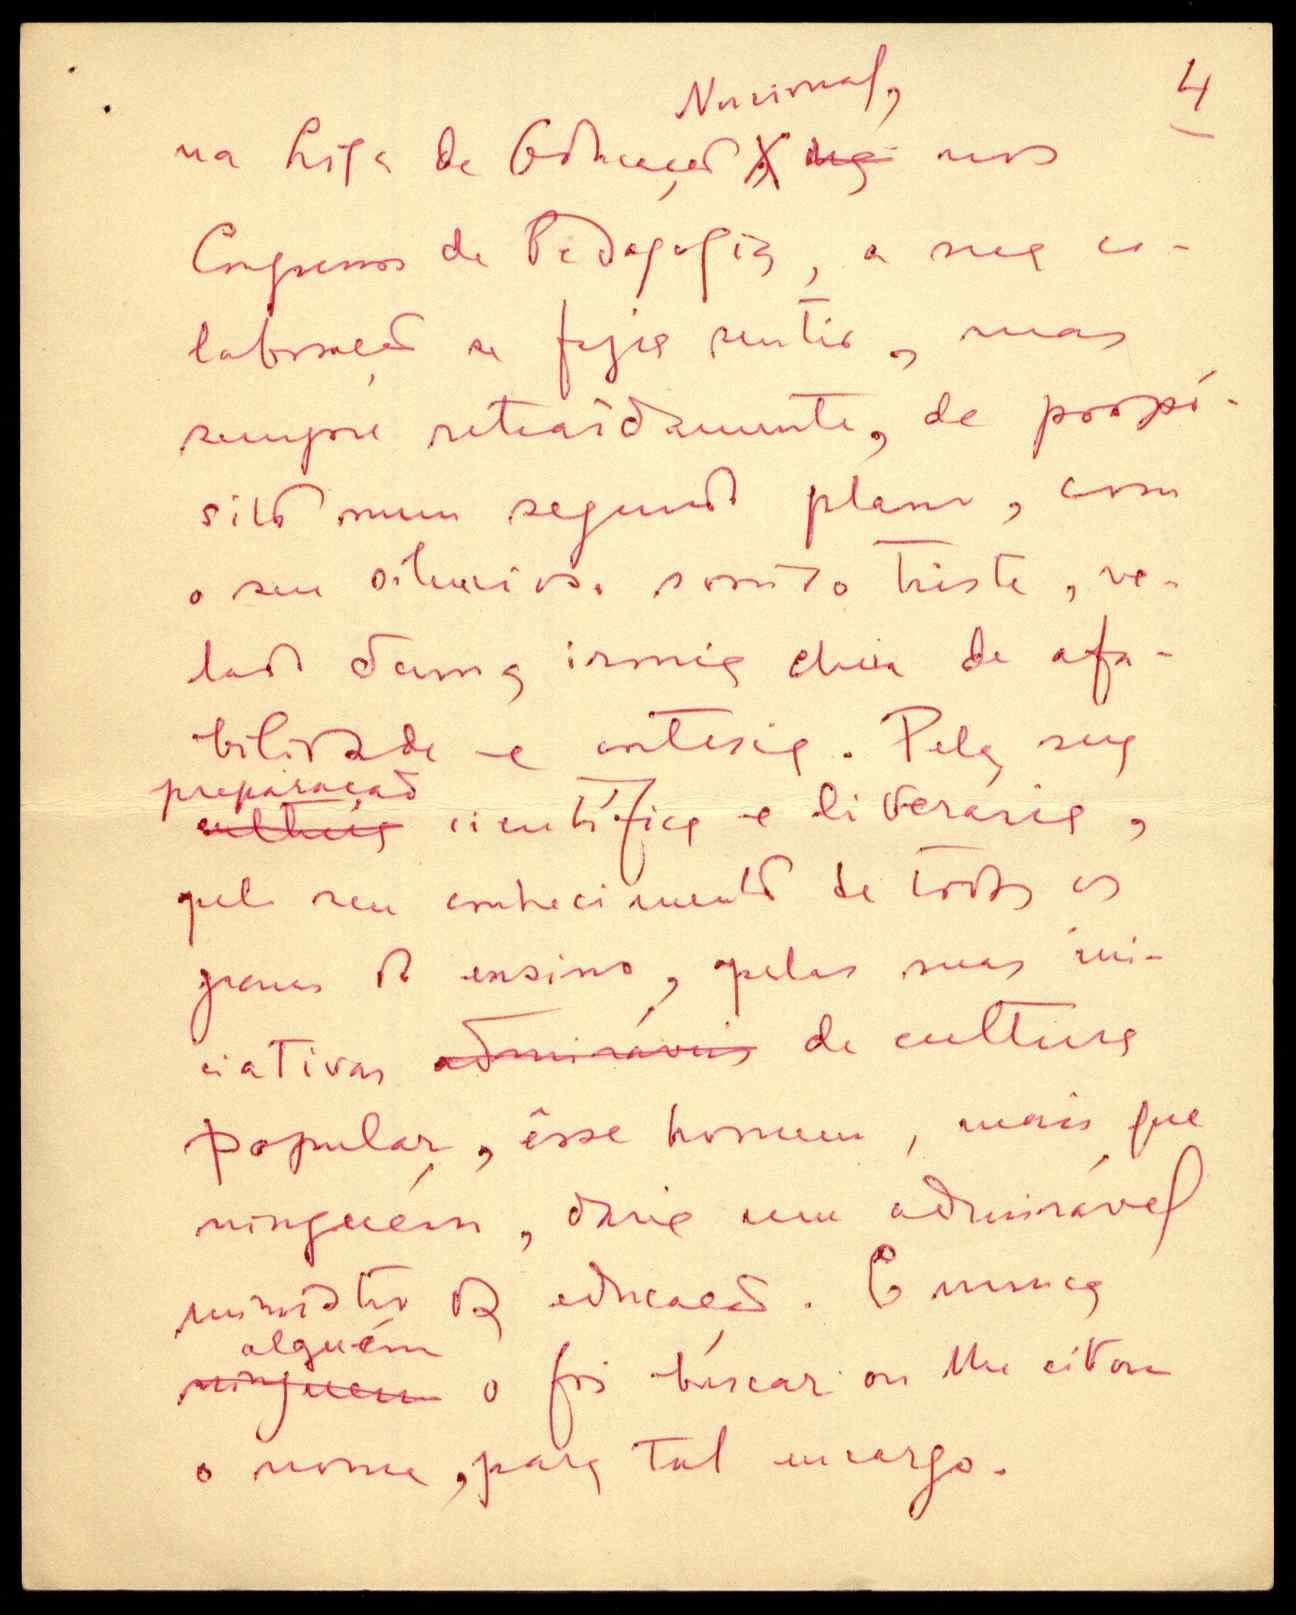 4
Nacional,
na Liga de Educação nos
Congressos de Pedagogia, a sua co-
laboração se fazia sentir, mas
sempre retraídamente, de propó-
sito num segundo plano, com
o seu silencioso sorriso triste, ve-
lado duma ironia cheia de afa-
bilidade e cortesia. Pela sua
preparação
cultura científica e literária,
pelo seu conhecimento de todos os
graus do ensino, pelas suas ini-
ciativas admiráveis de cultura
popular, êsse homem, mais que
ninguém, daria um admirável
ministro da educação. E nunca
alguém
ninguem o foi buscar ou lhe citou
o nome, para tal encargo.